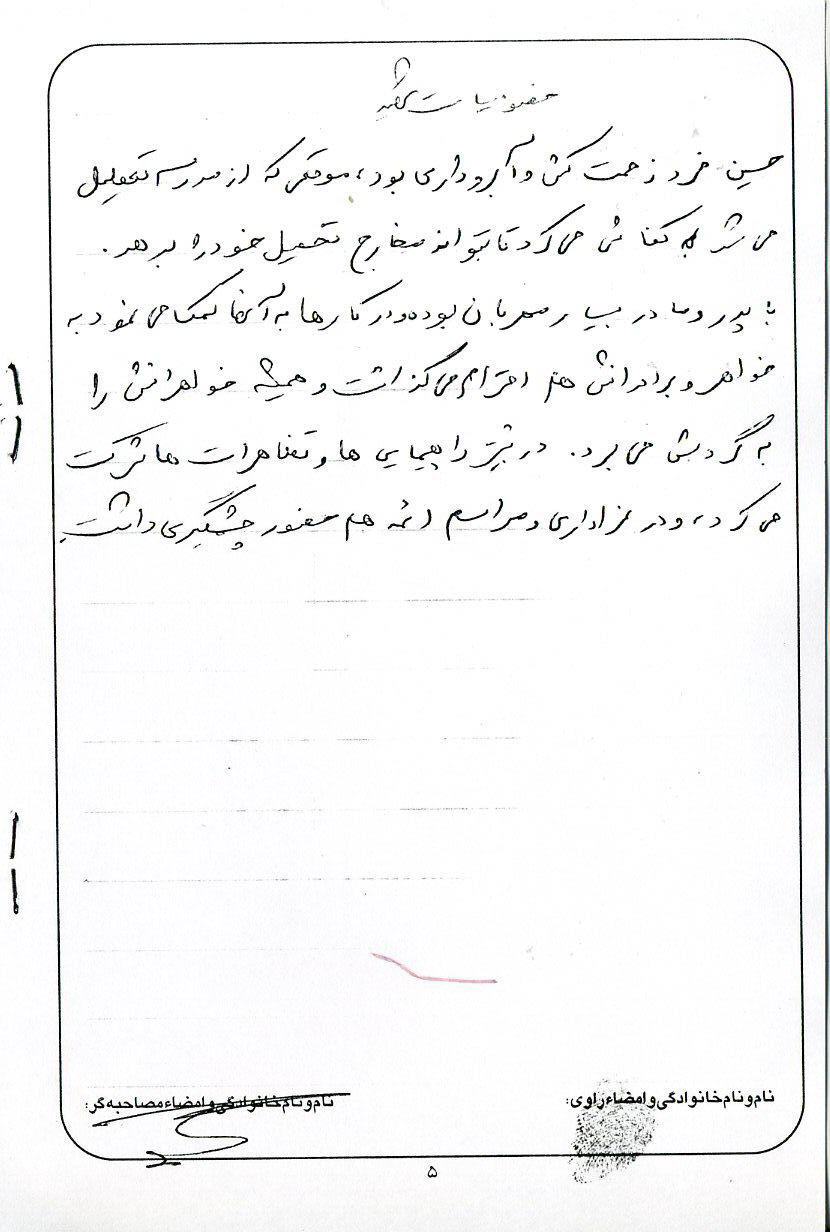 خصوصیات شهید
حسین فرد زحمت کش و آبروداری بود، موقعی که از مدرسه تعطیل
می شد کفاشی می کرد تا بتواند مخارج تحصیل خود را بدهد.
با پدر و مادر بسیار مهربان بوده و در کارها به آنها کمک می نمود به
خواهر و برادرانش هم احترام می گذاشت و همیشه خواهرانش را
به گردش می برد. در بیشتر راهپیمایی ها و تظاهرات ها شرکت
می کرد، و در عزاداری و مراسم ائمه هم حضور چشمگیری داشت.
نام و نام خانوادگی و امضاء راوی:
نام و نام خانوادگی و امضاء مصاحبه گر:
۵